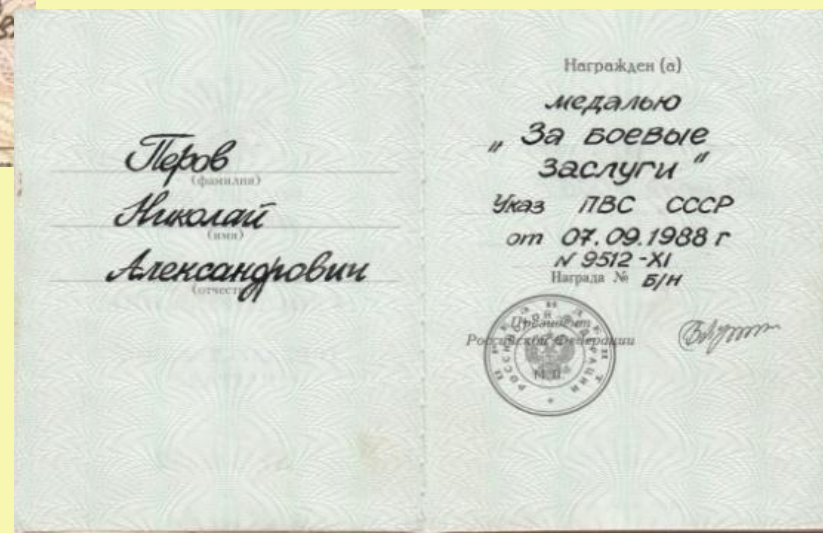 Перов
(фамилия)
Николай
(имя)
Александрович
(отчество)
Награжден (а)
медалью
„За боевые
заслуги"
Указ ПВС СССР
от 07.09.1988 г
N 9512-XI
Награда № Б/Н
Президент
Российской Федерации
М.П.
ПРЕЗИДЕНТ
РОССИЙСКОЙ ФЕДЕРАЦИИ